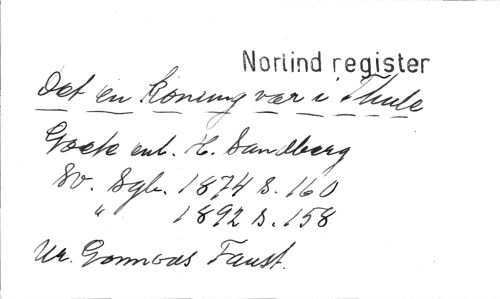 Norlind register
Det en Konung var i Thule
Goete enl. H. Sandberg
Sv. Sgb. 1874 s. 160
" 1892 s. 158
Ur. Gounods Faust.